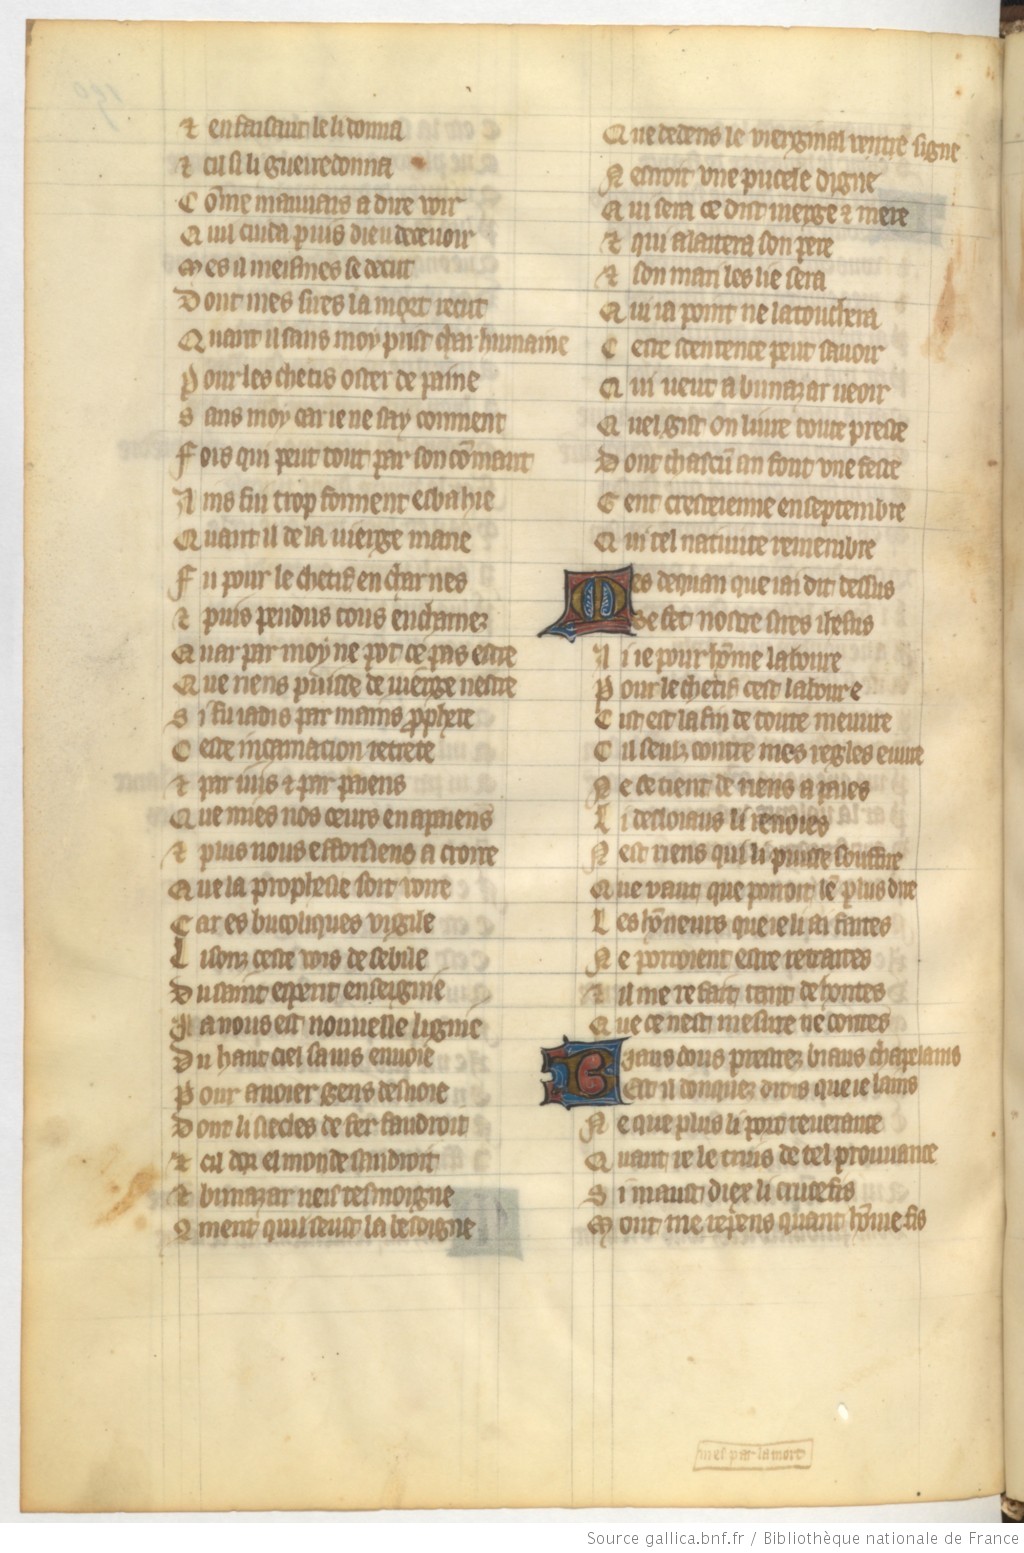 ⁊ en faisant le li donna
⁊ cil si li guerredonna
Cōme mauuais a dire voir
Qui cuida puis dieu deceuoir
Mes il meismes se decut
Dont mes sires la mort recut
Quant il sans moy prist char humaine
Pour les chetis oster de paine
Sans moy car ie ne say comment
Fors qui peut tout par son cōmant
Ains fui trop forment esbahie
Quant il de la vierge marie
Fu pour le chetif en char nes
⁊ puis pendus tous encharnez
Quar par moy ne pot ce pas estre
Que riens puisse de vierge nestre
Si fu iadis par mains prophete
Ceste incarnation retrete
⁊ par iuis ⁊ par paiens
Que mies nos cuers en apaiens
⁊ plus nous efforsiens a croire
Que la prophesie soit voire
Car es bucoliques virgile
Lisonz ceste vois de sebile
Du saint esperit enseignie
Ia nous est nouuelle lignie
Du haut ciel sa ius enuoie
Pour auoier gens desuoie
Dont li siecles de fer faudroit
⁊ cil dor el monde saudroit
⁊ bunazar neis tesmoigne
Qment quil seust la besoigne
Que dedens le vierginal ventre signe
Nestroit vne pucele digne
Qui sera ce dist vierge ⁊ mere
⁊ qui alaitera son pere
⁊ son mari les lie sera
Qui ia point ne la touchera
Ceste sentence peut sauoir
Qui veut abunazar veoir
Quel gist on liure toute preste
Dont chascū an font vne feste
Gent crestienne en septembre
Qui tel natiuite remembre
Mes dequan que iai dit dessus
Se set nostre sires ihesus
Ai ie pour hōme laboure
Pour le chetif cest laboure
Cist est la fin de toute meuure
Cil seulz contre mes regles euure
Ne se tient de riens a paies
Li desloiaus li renoies
Nest riens qui li puisse souffire
Que vaut que porroit len plus dire
Les hōneurs que ie li ai faites
Ne porroient estre retraites
⁊ il me refait tant de hontes
Que ce nest mesure ne contes
Biaus dous prestrez biaus chapelains
Est il donquez drois que ie lains
Ne que plus li port reuerance
Quant ie le truis de tel prouuance
Si maust diex li crucefis
Mont me repens quant hōme fis
mes par la mort
Source gallica.bnf.fr / Bibliothèque nationale de France